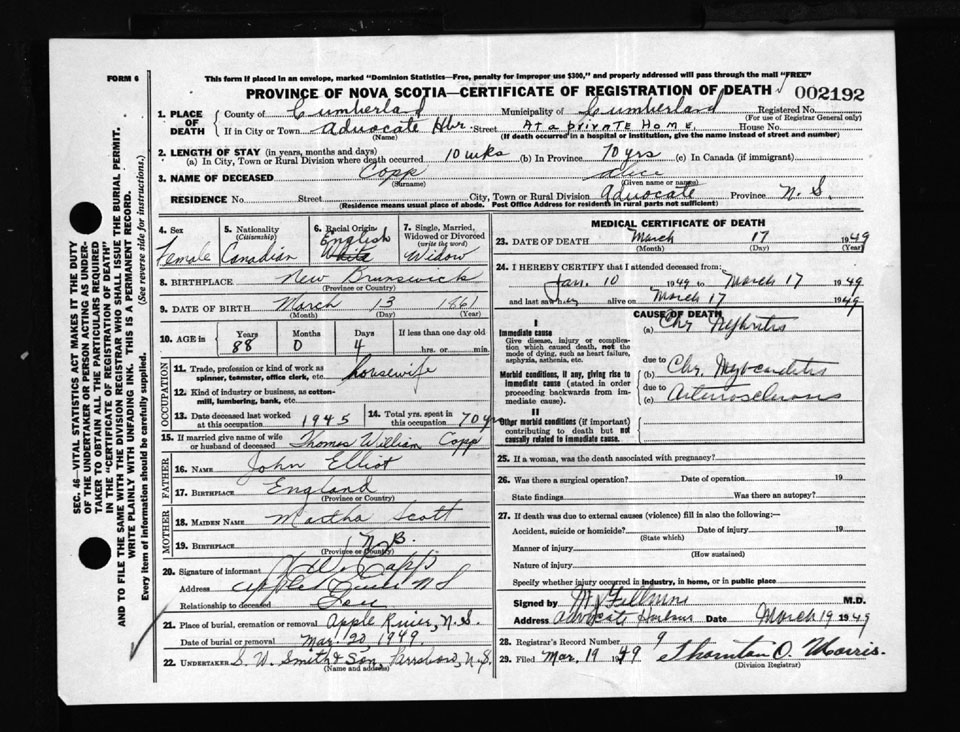 FORM 6
This form if placed in an envelope, marked "Dominion Statistics—Free, penalty for improper use $300," and properly addressed will pass through the mail "FREE"
PROVINCE OF NOVA SCOTIA—CERTIFICATE OF REGISTRATION OF DEATH 002192
1. PLACE OF DEATH
County of Cumberland Municipality of Cumberland Registered No.
(For use of Registrar General only)
If in City or Town Advocate Hbr. Street At a private Home. House No.
(If death occurred in a hospital or institution, give the name instead of street and number)
2. LENGTH OF STAY (in years, months and days)
(a) In City, Town or Rural Division where death occurred 10 wks (b) In Province 70 yrs (c) In Canada (if immigrant)
3. NAME OF DECEASED Copp Alice
(Surname) (Given name or names)
RESIDENCE No. Street City, Town or Rural Division Advocate Province N.S.
(Residence means usual place of abode. Post Office Address for residents in rural parts not sufficient)
4. Sex
Female
5. Nationality
(Citizenship)
Canadian
6. Racial Origin
English
White
7. Single, Married,
Widowed or Divorced
(write the word)
Widow
8. BIRTHPLACE New Brunswick
(Province or Country)
9. DATE OF BIRTH March 13 1861
(Month) (Day) (Year)
10. AGE in
Years Months Days If less than one day old
88 0 4 hrs. or min.
OCCUPATION
11. Trade, profession or kind of work as
spinner, teamster, office clerk, etc. housewife
12. Kind of industry or business, as cotton-
mill, lumbering, bank, etc.
13. Date deceased last worked
at this occupation 1945
14. Total yrs. spent in
this occupation 70 yrs
15. If married give name of wife
or husband of deceased Thomas William Copp
FATHER
16. NAME John Elliot
17. BIRTHPLACE England
(Province or Country)
MOTHER
18. MAIDEN NAME Martha Scott
19. BIRTHPLACE N.B.
(Province or Country)
20. Signature of informant Copp
Address Apple River N S
Relationship to deceased Son
21. Place of burial, cremation or removal Apple River, N.S.
Date of burial or removal Mar. 20, 1949
22. UNDERTAKER S. W. Smith & Son, Parrsboro, N.S.
(Name and address)
MEDICAL CERTIFICATE OF DEATH
23. DATE OF DEATH March 17 1949
(Month) (Day) (Year)
24. I HEREBY CERTIFY that I attended deceased from:
Jan. 10 1949 to March 17 1949
and last saw her alive on March 17 1949
CAUSE OF DEATH
I
Immediate cause
Give disease, injury or complica-
tion which caused death, not the
mode of dying, such as heart failure,
asphyxia, asthenia, etc.
(a) Chr. Nephritis
due to
Morbid conditions, if any, giving rise to
immediate cause (stated in order
proceeding backwards from im-
mediate cause).
(b) Chr. Myocarditis
due to
(c) Arteriosclerosis
II
Other morbid conditions (if important)
contributing to death but not
causally related to immediate cause.
25. If a woman, was the death associated with pregnancy?
26. Was there a surgical operation? Date of operation 19
State findings Was there an autopsy?
27. If death was due to external causes (violence) fill in also the following:—
Accident, suicide or homicide? Date of injury 19
(State which)
Manner of injury
(How sustained)
Nature of injury
Specify whether injury occurred in industry, in home, or in public place
Signed by Fillmore M.D.
Address Advocate Harbour Date March 19 1949
28. Registrar's Record Number 9
29. Filed Mar. 19 1949 Thornton O. Morris.
(Division Registrar)
SEC. 46—VITAL STATISTICS ACT MAKES IT THE DUTY
OF THE UNDERTAKER OR PERSON ACTING AS UNDER-
TAKER TO OBTAIN ALL THE PARTICULARS REQUIRED
IN THE "CERTIFICATE OF REGISTRATION OF DEATH"
AND TO FILE THE SAME WITH THE DIVISION REGISTRAR WHO SHALL ISSUE THE BURIAL PERMIT.
WRITE PLAINLY WITH UNFADING INK. THIS IS A PERMANENT RECORD.
Every item of information should be carefully supplied. (See reverse side for instructions.)